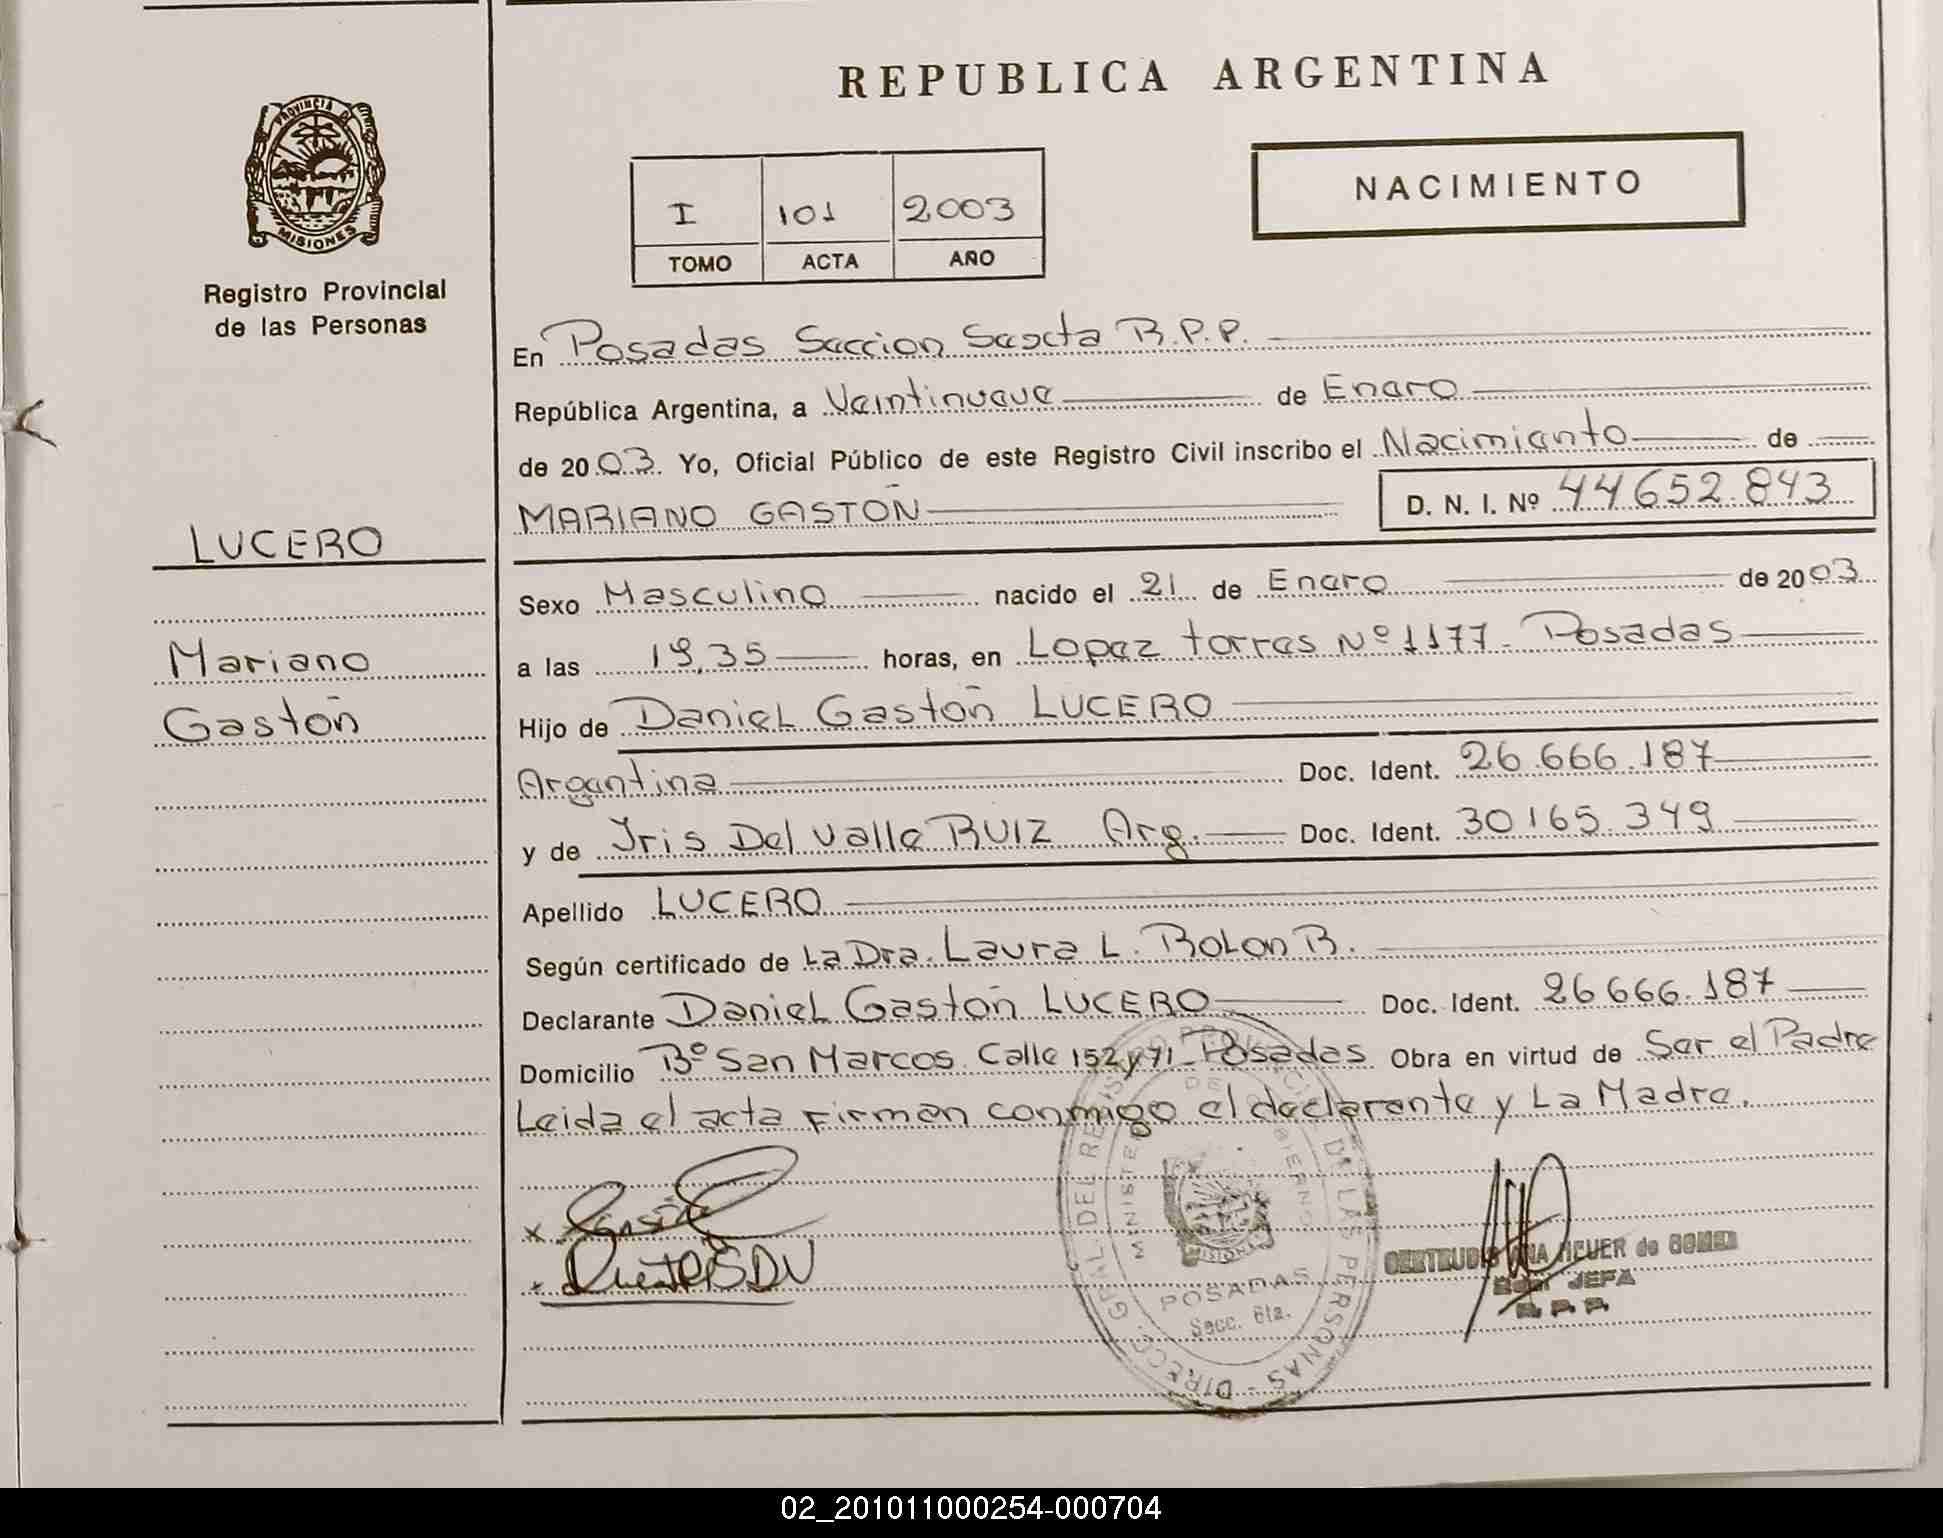 REPUBLICA ARGENTINA
PROVINCIA D
MISIONES
Registro Provincial
de las Personas
I 101 2003
TOMO ACTA AÑO
NACIMIENTO
En Posadas Seccion Sexta R.P.P.
República Argentina, a Veintinueve de Enero
de 2003 Yo, Oficial Público de este Registro Civil inscribo el Nacimiento de
MARIANO GASTON
D. N. I. Nº 44652.843
LUCERO
Mariano
Gastón
Sexo Masculino nacido el 21 de Enero de 2003
a las 19,35 horas, en Lopez torres Nº 1177 - Posadas
Hijo de Daniel Gastón LUCERO
Argentina Doc. Ident. 26.666.187
y de Iris Del Valle RUIZ Arg. Doc. Ident. 30165.349
Apellido LUCERO
Según certificado de La Dra. Laura L. Bolon B.
Declarante Daniel Gastón LUCERO Doc. Ident. 26666.187
Domicilio Bº San Marcos. Calle 152 y 71 - Posadas Obra en virtud de Ser el Padre
Leida el acta Firman conmigo el declarante y La Madre.
DIRECC. GRAL. DEL REGISTRO PROVINCIAL DE LAS PERSONAS
MINISTERIO DE GOBIERNO
MISIONES
POSADAS
Secc. 6ta.
GERTRUDIS ANA de GOMEZ
JEFA
R.P.P.
02_201011000254-000704